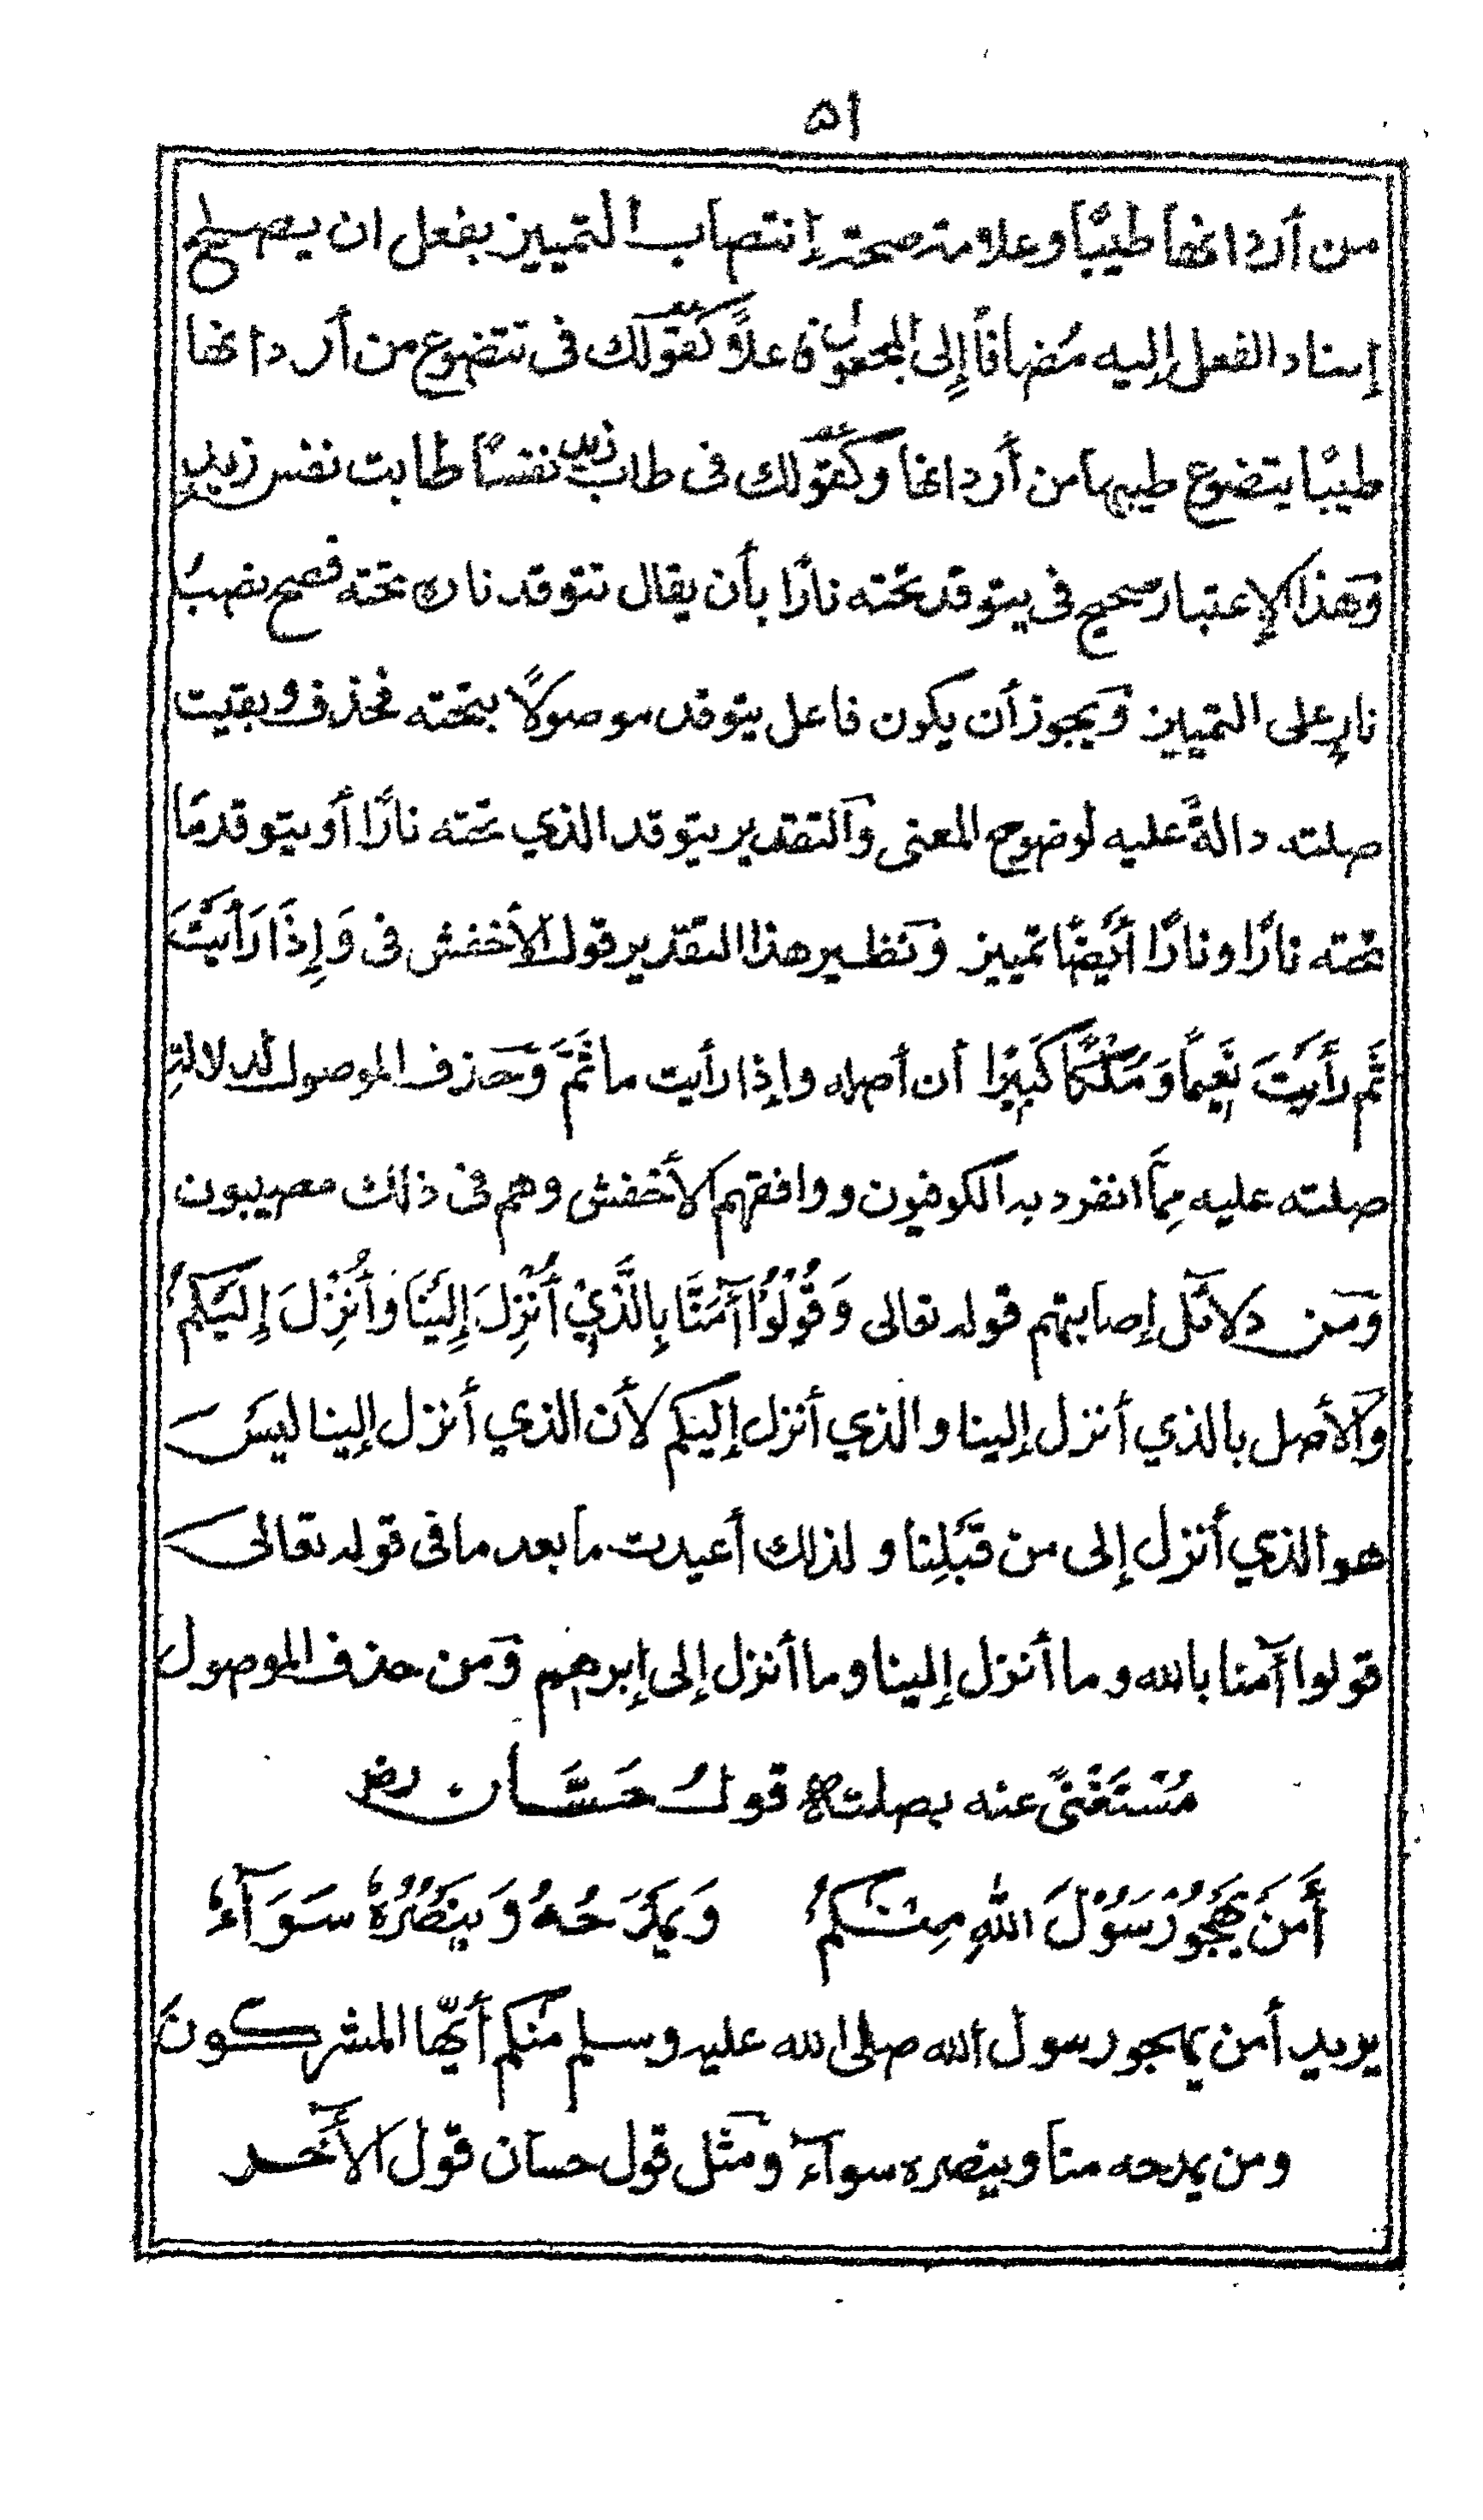 ٥١
من أردانها طيبًا وعلامة صحة إنتصاب التمييز بفعل ان يصلح
إسناد الفعل إليه مُضافاً إلى المجعول فاعلاً كقولك فى تتضوع من أردانها
طيبًا يتضوع طيبها من أردانها وكقولك فى طاب زيد نفسًا طابت نفس زيدٍ
وَهذا الإعتبار صحيح فى يتوقد تحته نارًا بأن يقال تتوقد ناره تحته فصح نصبُ
نارٍ على التمييز وَيجوز أن يكون فاعل يتوقد موصولاً بتحته فحذف وبقيت
صلته دالةً عليه لوضوح المعنى وَالتقدير يتوقد الذي تحته نارًا أو يتوقد مَا
تحته نارًا ونارًا أيضًا تمييز وَنظير هذا التقدير قول الأخفش فى وَإِذَا رَأَيْتَ
ثَم رأَيتَ نَعِيماً وَمُلْكًا كَبِيرًا أن أصله وإذا رأيت ما ثَمَّ وَحذف الموصول لدلالة
صلته عليه مِمَّا انفرد به الكوفيون ووافقهم الأخفش وهم فى ذلك مصيبون
وَمن دلائل إصابتهم قوله تعالى وَقُولُوْا آمَنَّا بِالَّذِيْ أُنْزِلَ إِلَيْنَا وَأُنْزِلَ إِلَيْكُمْ
وَالأصل بالذي أنزل إلينا والذي أنزل إليكم لأن الذي أنزل إلينا ليس
هو الذي أنزل إلى من قَبْلِنا ولذلك أعيدت ما بعد ما فى قوله تعالى
قولوا آمنا بالله وما أنزل إلينا وما أنزل إلى إبرهيم وَمن حذف الموصول
مُسْتَغْنًى عنه بصلته قولُ حَسَّان رض
أَمَنْ يَهْجُوْ رَسُوْلَ اللهِ مِنْكُمْ وَيَمْدَحُهُ وَيَنْصُرُهُ سَوَآءُ
يريد أمن يهجو رسول الله صلى الله عليه وسلم منكم أيّها المشركونَ
ومن يمدحه منا وينصره سوآءٌ وَمثل قول حسان قول الآخر